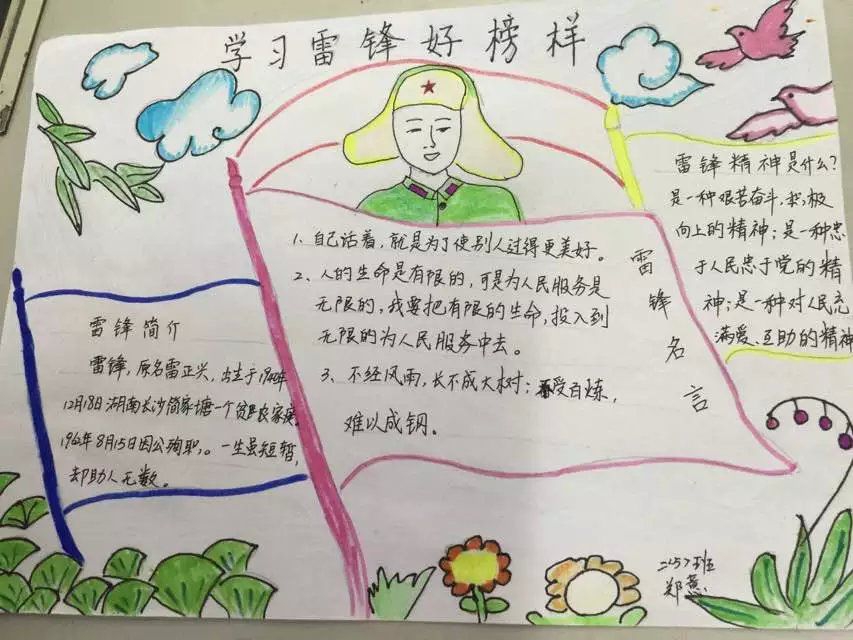 学习雷锋好榜样
雷锋精神是什么?
是一种艰苦奋斗,积极
向上的精神;是一种忠
于人民忠于党的精
神;是一种对人民充
满爱、互助的精神
1、自己活着,就是为了使别人过得更美好。
2、人的生命是有限的,可是为人民服务是
无限的,我要把有限的生命,投入到
无限的为人民服务中去。
3、不经风雨,长不成大树;不受百炼,
难以成钢。
雷锋名言
雷锋简介
雷锋,原名雷正兴,出生于1940年
12月18日湖南长沙简家塘一个贫农家庭,
8月15日因公殉职,。一生虽短暂,
却助人无数。
班
郑慧